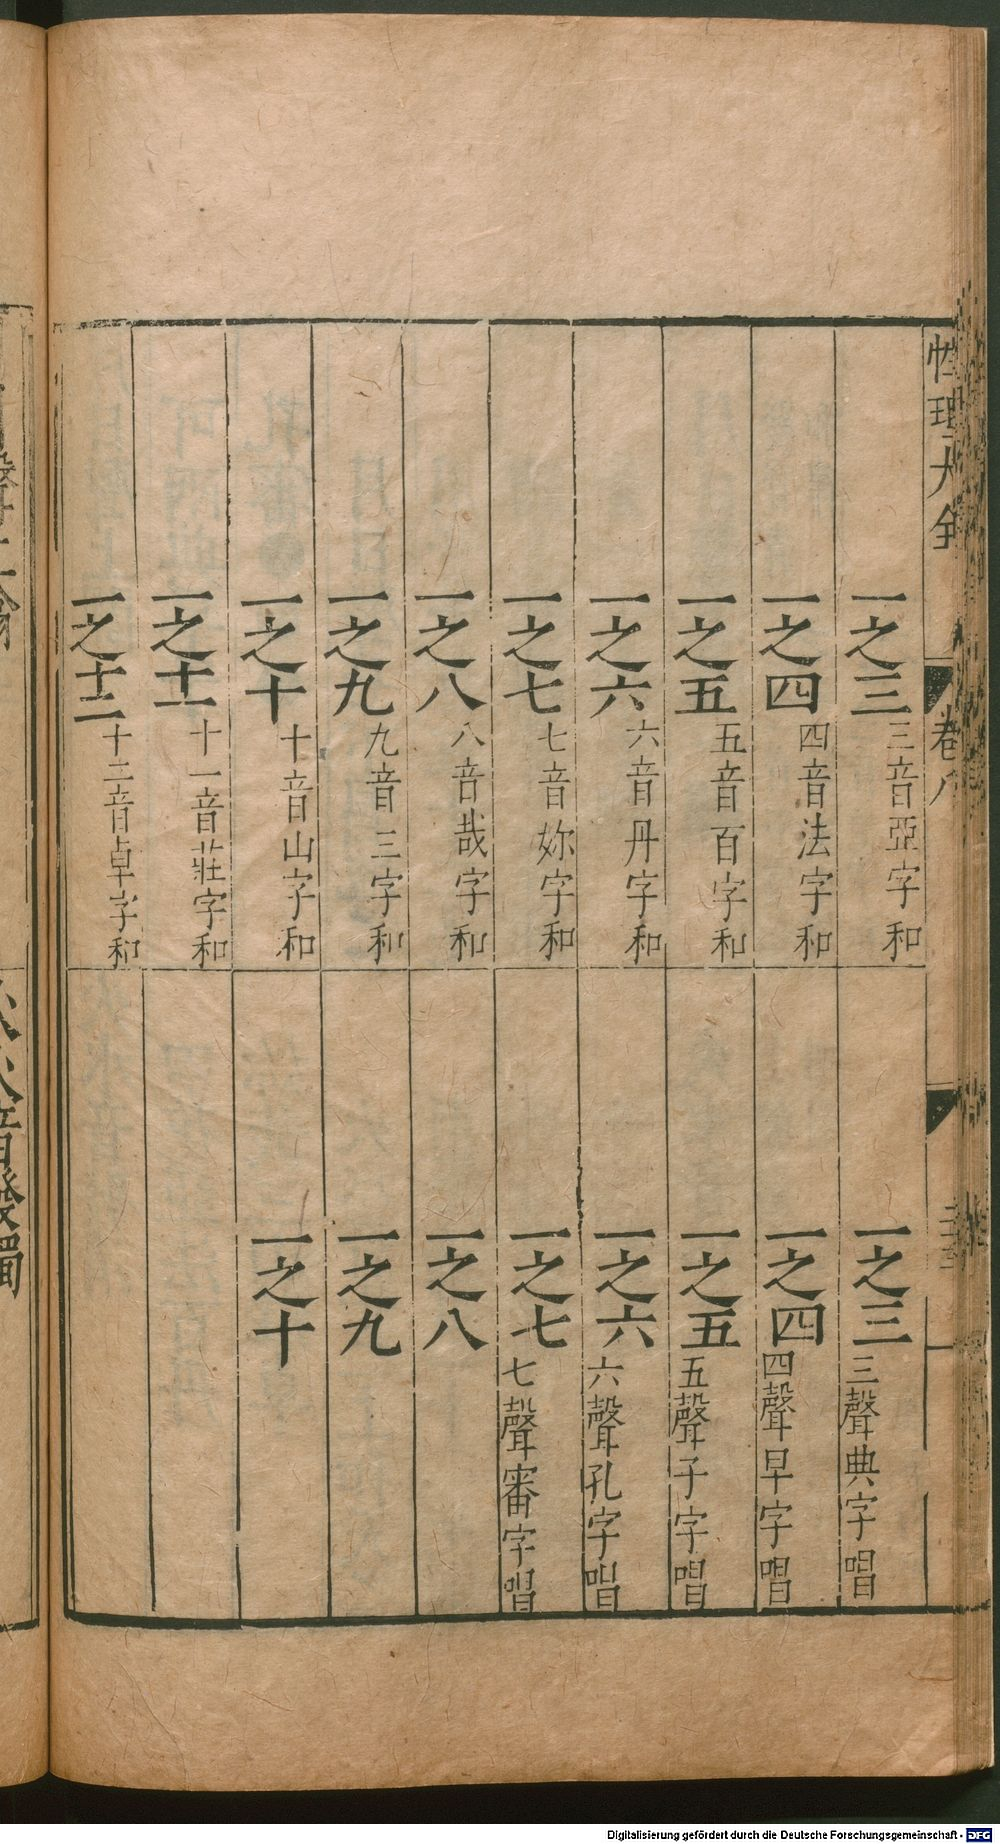 性理大全
卷八
一之三 三音亞字和
一之四 四音法字和
一之五 五音百字和
一之六 六音丹字和
一之七 七音妳字和
一之八 八音哉字和
一之九 九音三字和
一之十 十音山字和
一之十一 十一音莊字和
一之十二 十二音卓字和
一之三 三聲典字唱
一之四 四聲早字唱
一之五 五聲子字唱
一之六 六聲孔字唱
一之七 七聲審字唱
一之八
一之九
一之十
音發濁
Digitalisierung gefördert durch die Deutsche Forschungsgemeinschaft - DFG